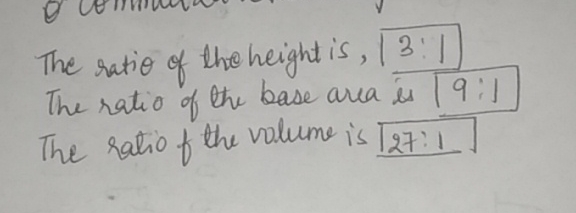 The ratio of the height is, 3:1
The ratio of the base area is 9:1
The ratio of the volume is 27:1